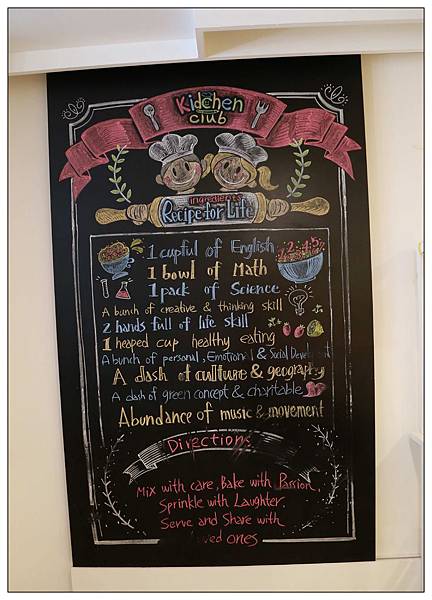 Kidchen
club
ingredients
Recipe for Life
1 cupful of English
1 bowl of Math
1 pack of Science
A bunch of creative & thinking skill
2 hands full of life skill
1 heaped cup healthy eating
A bunch of personal, Emotional & Social
A dash of culture & geography
A dash of green concept & charitable
Abundance of music & movement
Directions
Mix with care, Bake with Passion,
Sprinkle with Laughter.
Serve and Share with
ones